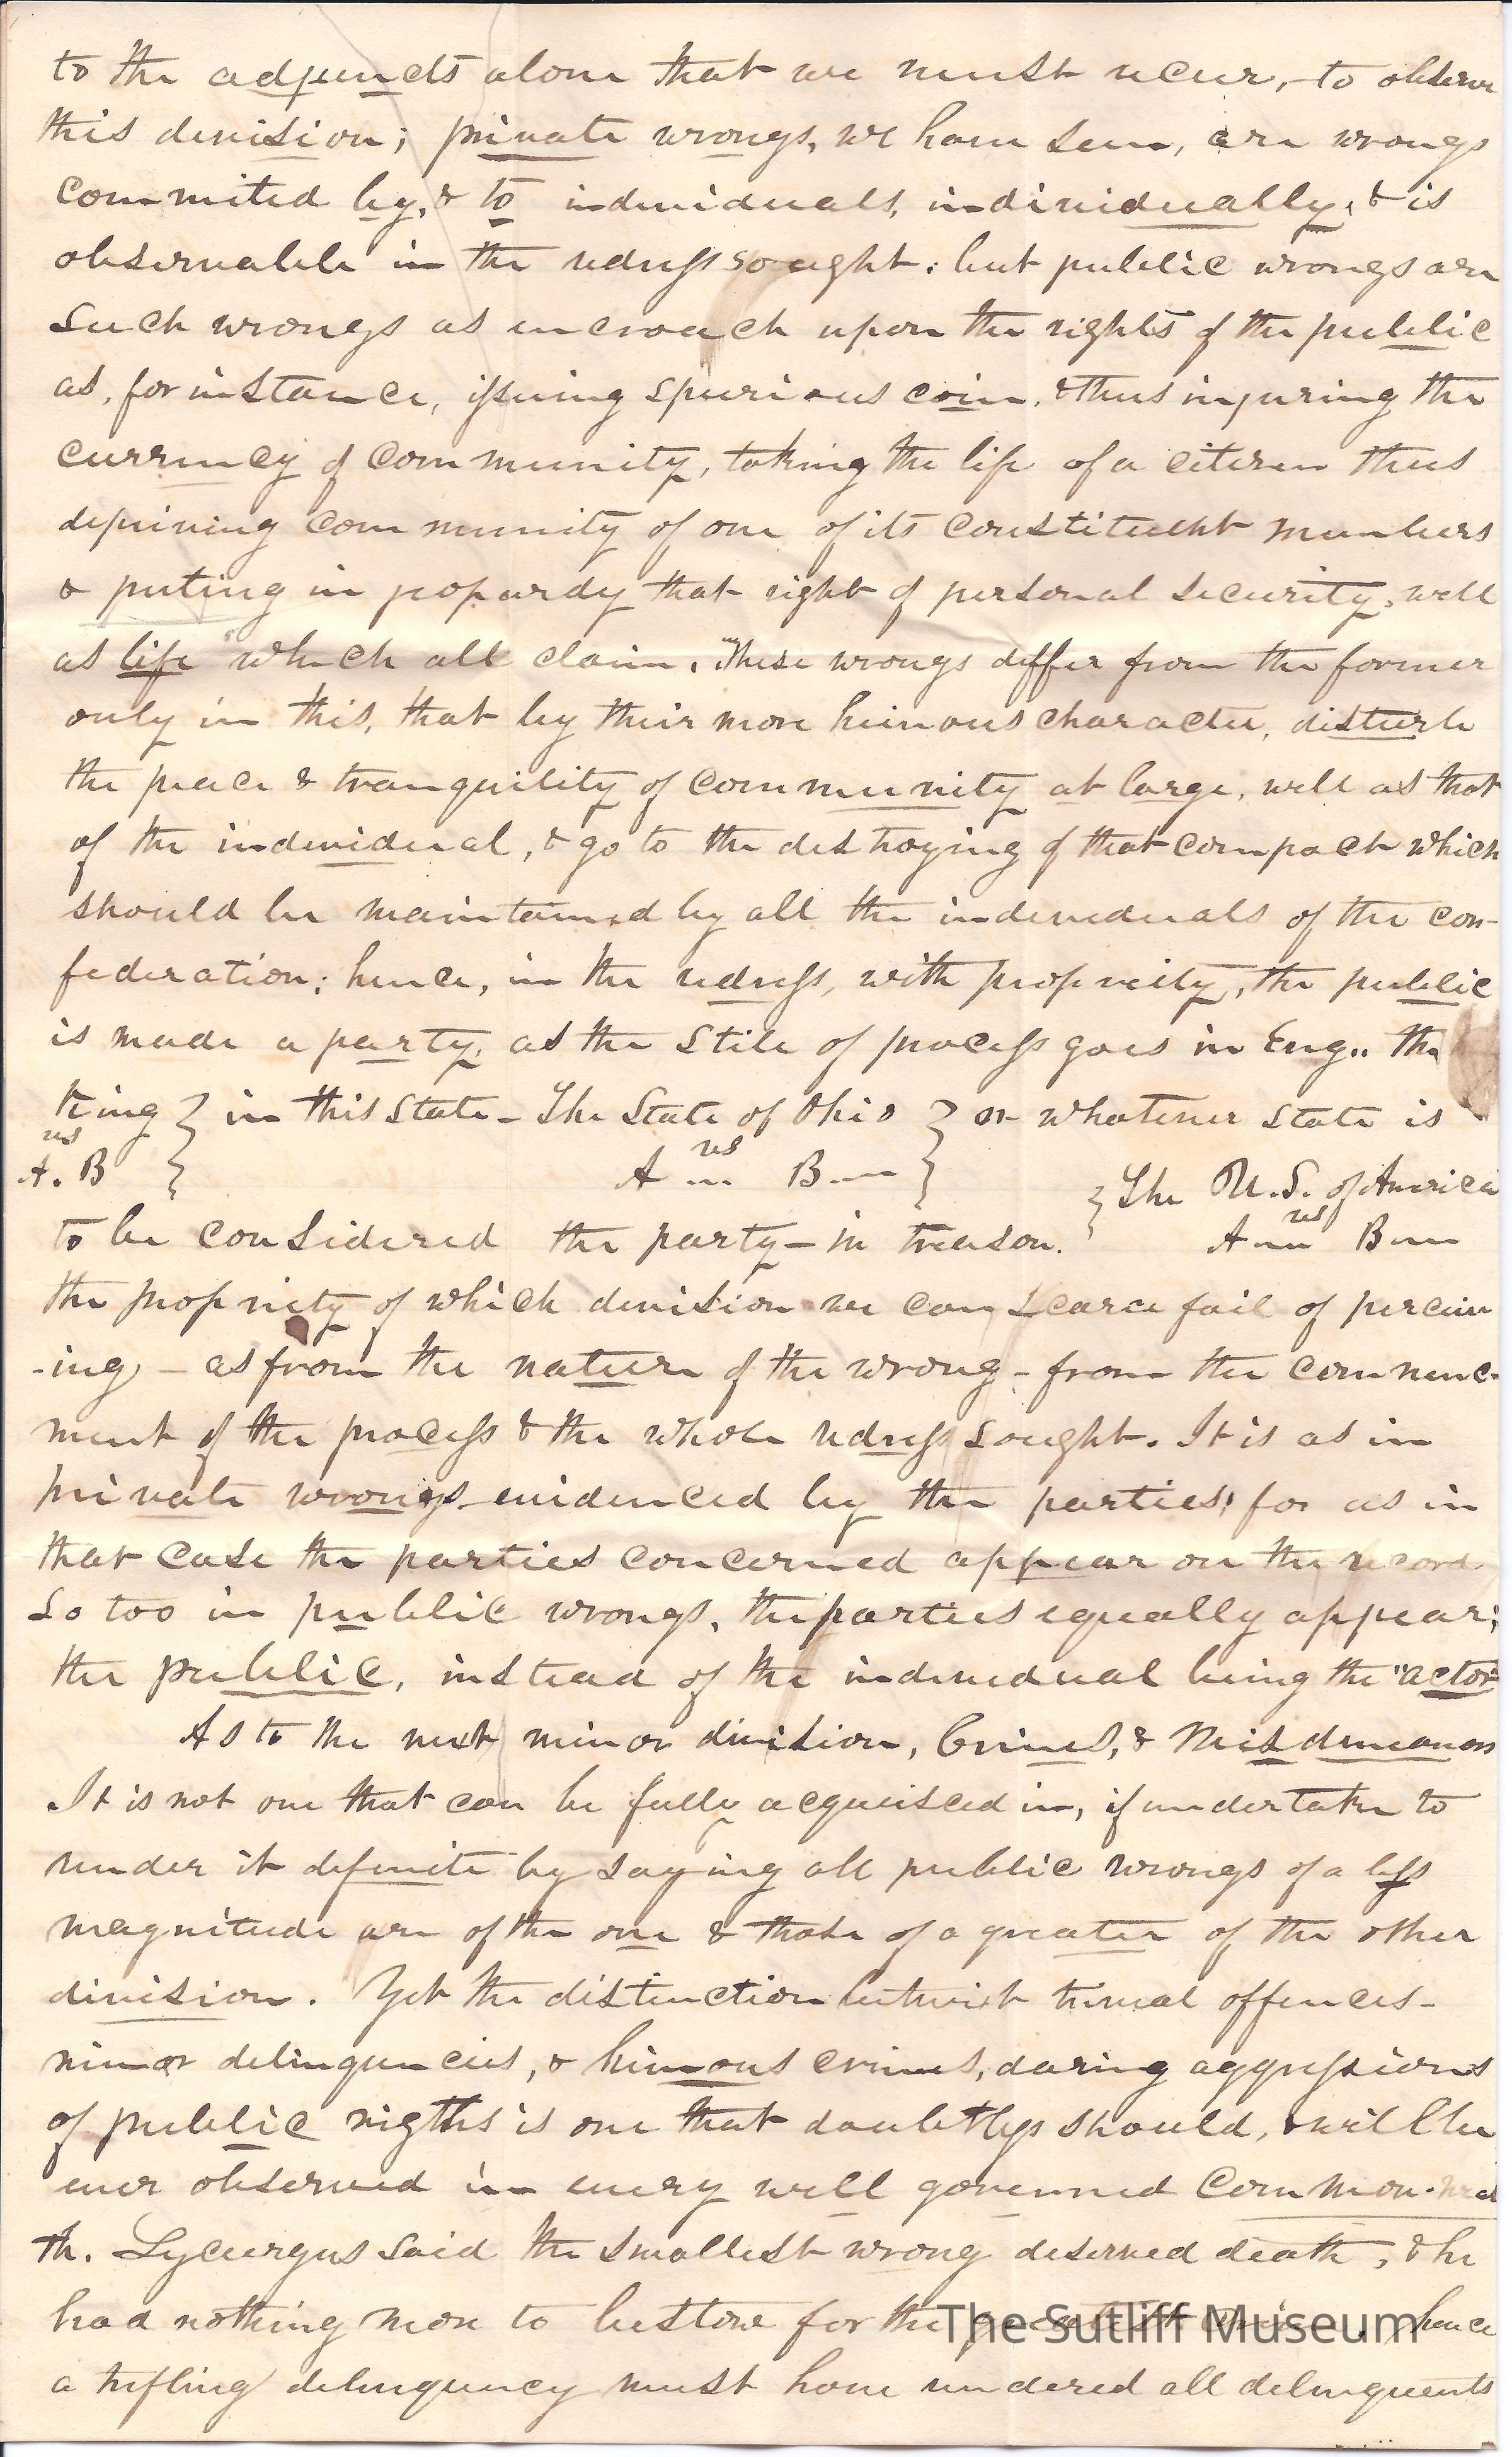 to the adjuncts alone that we must recur, to observe
this division; private wrongs, we have seen, are wrongs
commited by, & to individuals, individually, & is
observable in the redress sought: but public wrongs are
such wrongs as encroach upon the rights of the public
as, for instance, issuing spurious coin, & thus injuring the
currency of community, taking the life of a citizen thus
depriving community of one of its constituent members
& puting in jeopardy that right of personal security, well
as life which all claim. These wrongs differ from the former
only in this, that by their more heinous character, disturb
the peace & tranquility of community at large, well as that
of the individual, & go to the destroying of that compact which
should be maintained by all the individuals of the con-
federation; hence, in the redress, with propriety, the public
is made a party, as the stile of process goes in Eng.. the
King } in this State - The State of Ohio } or whatever state is
vs
A. B } A... vs B... } } The U.S. of America
to be considered the party - in treason. A... vs B...
the propriety of which division we can scarce fail of perceiv
-ing - as from the nature of the wrong - from the commenc-
ment of the process & the whole redress sought. It is as in
private wrongs evidenced by the parties, for as in
that case the parties concerned appear on the record
so too in public wrongs, the parties equally appear;
the public, instead of the individual being the "actor"
As to the next minor division, Crimes, & Misdemeanors
It is not one that can be fully acquiesced in, if undertake to
render it definite by saying all public wrongs of a less
magnitude are of the one & those of a greater of the other
division. Yet the distinction betwixt trivial offences -
minor delinquencies, & heinous crimes, daring aggressions
of public rigths is one that doubtless should, & will be
ever observed in every well governed Common-weal
th. Lycurgus said the smallest wrong deserved death, & he
had nothing more to bestow for the greatest crime. hence
a trifling delinquency must have rendered all delinquents
The Sutliff Museum